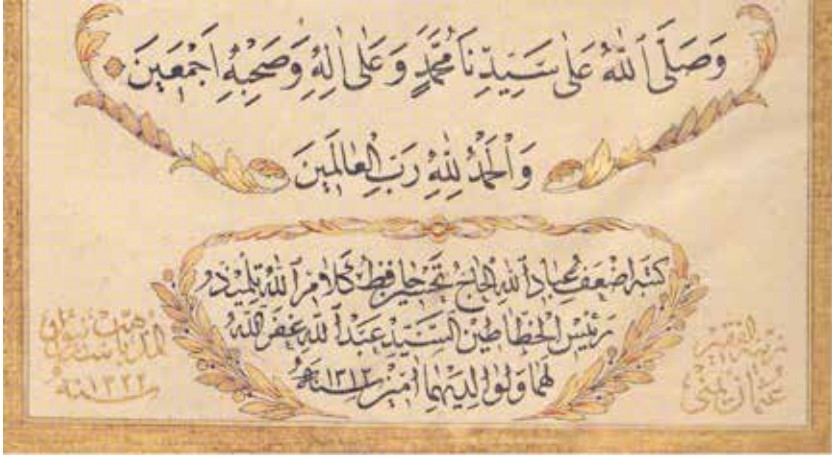 وَصَلَّى ٱللّٰهُ عَلٰى سَيِّدِنَا مُحَمَّدٍ وَعَلٰى اٰلِهٖ وَصَحْبِهٖ اَجْمَعِينَ
وَالْحَمْدُ لِلّٰهِ رَبِّ الْعَالَمِينَ
كتبه اضعف عباد الله الحاج حافظ كلام الله تلميذ
رئيس الخطاطين السيد عبد الله غفر الله
لهما ولوالديهما امين سنة ١٣١٢
سنة ١٣٢٢
عثمان يمنى